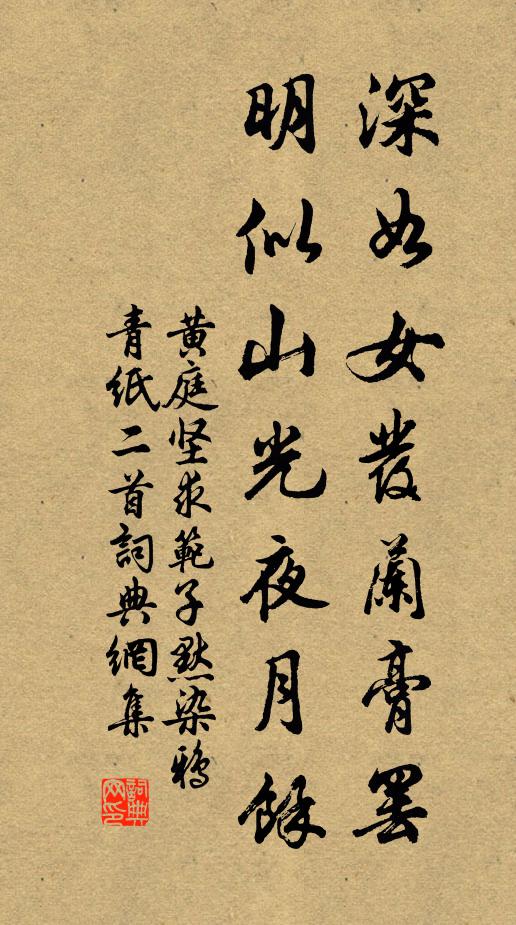 深如女發蘭膏罢
明似山光夜月餘
黄庭坚求範子默染鴉
青紙二首詞典網集
詞典
网印